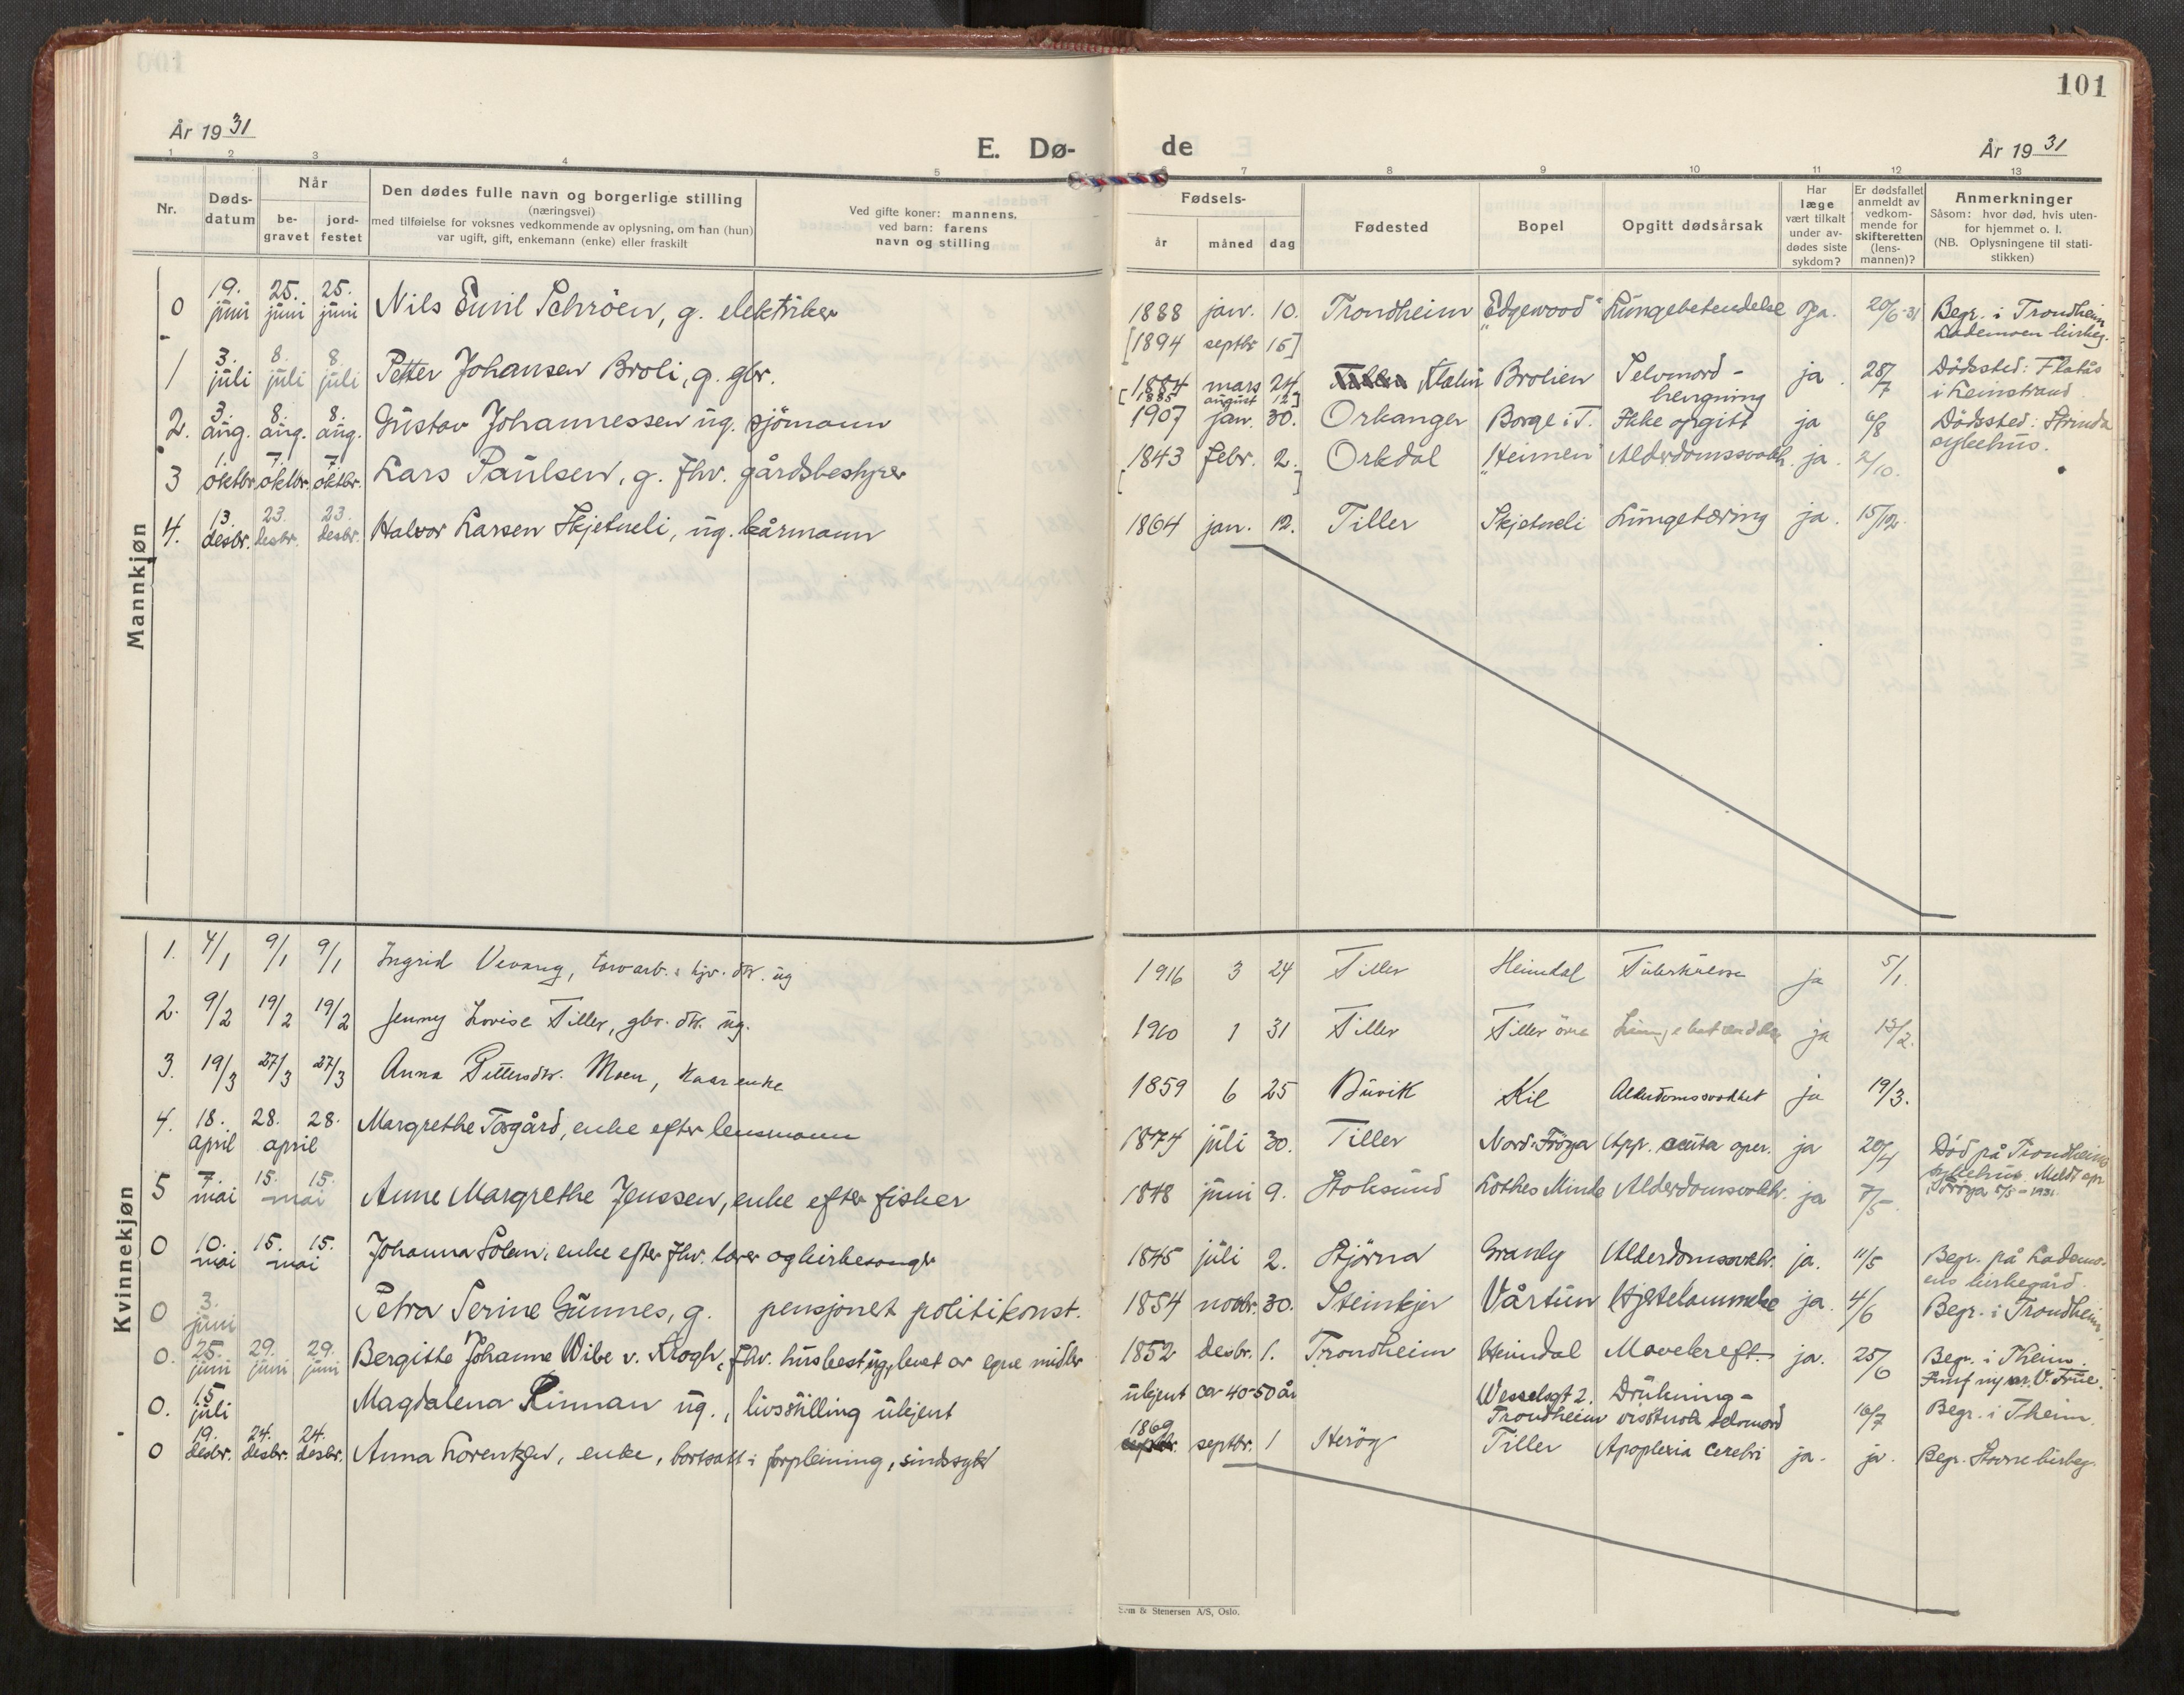 101
År 19 31
E. Dø-
de
År 19 31
1 2 3 4 5 6 7 8 9 10 11 12 13
Nr.
Døds-
datum
Når
be-
gravet
jord-
festet
Den dødes fulle navn og borgerlige stilling
(næringsvei)
med tilføielse for voksnes vedkommende av oplysning, om han (hun)
var ugift, gift, enkemann (enke) eller fraskilt
Ved gifte koner: mannens,
ved barn: farens
navn og stilling
Fødsels-
år måned dag
Fødested
Bopel
Opgitt dødsårsak
Har
læge
vært tilkalt
under av-
dødes siste
sykdom?
Er dødsfallet
anmeldt av
vedkom-
mende for
skifteretten
(lens-
mannen)?
Anmerkninger
Såsom: hvor død, hvis uten-
for hjemmet o. l.
(NB. Oplysningene til stati-
stikken)
Mannkjøn
0 19. juni 25. juni 25. juni Nils Emil Schröen, g. elektriker 1888 jan. 10. Trondheim "Edgewood" Lungebetendelse Ja. 20/6-31 Begr. i Trondheim
Lademoen kirkeg.
[1894 septbr 15]
1 3. juli 8. juli 8. juli Petter Johansen Broli, g. gbr. 1884 mars 24 Brolien Selvmord - ja 28/7 Dödssted: Flatås
hengning i Leinstrand
[1885 august 12]
2. 3. aug. 8. aug. 8. aug. Gustav Johannessen ug. sjömann 1907 jan. 30. Orkanger Borge i T. Ikke opgitt ja 6/8 Dödssted: Strinda
sykehus.
3 1. oktbr. 7. oktbr. 7. oktbr. Lars Paulsen, g. fhv. gårdsbestyrer 1843 febr. 2. Orkdal "Heimen" Alderdomssvakh. ja. 2/10.
4. 13. desbr. 23. desbr. 23. desbr. Halvor Larsen Skjetneli, ug. kårmann 1864 jan. 12. Tiller Skjetneli Lungetæring ja. 15/12.
Kvinnekjøn
1. 4/1 9/1 9/1 Ingrid Vevang, ug 1916 3 24 Tiller Heimdal Tuberkulose ja 5/1.
2. 9/2 19/2 19/2 Jenny Lovise Tiller, gbr. dtr. ug. 1910 1 31 Tiller Tiller övre Lungebetendelse ja 13/2.
3. 19/3 27/3 27/3 Anna Pettersdtr. Moen, kaarenke 1859 6 25 Buvik Kil Alderdomssvakhet ja 19/3.
4. 18. april 28. april 28. Margrethe Torgård, enke efter lensmann 1874 juli 30. Tiller Nord-Fröya App. acuta oper. ja 20/4 Död på Trondheims
sykehus. Meldt spr.
i Fröya 5/5-1931.
5 7. mai 15. mai 15. Anne Margrethe Jenssen, enke efter fisker 1848 juni 9. Stoksund Lothes Minde Alderdomssvakh. ja 7/5-
0 10. mai 15. mai 15. Johanna Solem, enke efter fhv. lærer og kirkesanger 1845 juli 2. Stjörna Granly Alderdomssvakh. ja. 11/5 Begr. på Lademo-
ens kirkegård.
0 3. juni Petra Serine Gunnes, g. pensjonert politikonst. 1854 novbr. 30. Steinkjer Vårtun Hjertelammelse ja. 4/6 Begr. i Trondheim.
0. 25. juni 29. juni 29. juni Bergitte Johanne Wibe v. Krogh, fhv. husbest. ug., levet av egne midler 1852 desbr. 1. Trondheim Heimdal Mavekreft. ja. 25/6 Begr. i Theim.
0. 15 juli Magdalena Rinnan ug., livsstilling ukjent ukjent ca 40-50 år Wesselsgt 2. Drukning -
Trondheim selvmord 16/7 Begr. i Theim.
0 19. desbr. 24. desbr. 24. desbr. Anna Lorentzen, enke, bortsatt i forpleining, sindssyk 1869 septbr. 1 Heröy Tiller Apoplexia cerebri ja. ja. Begr. Stavne kirkeg.
Sem & Stenersen A/S, Oslo.